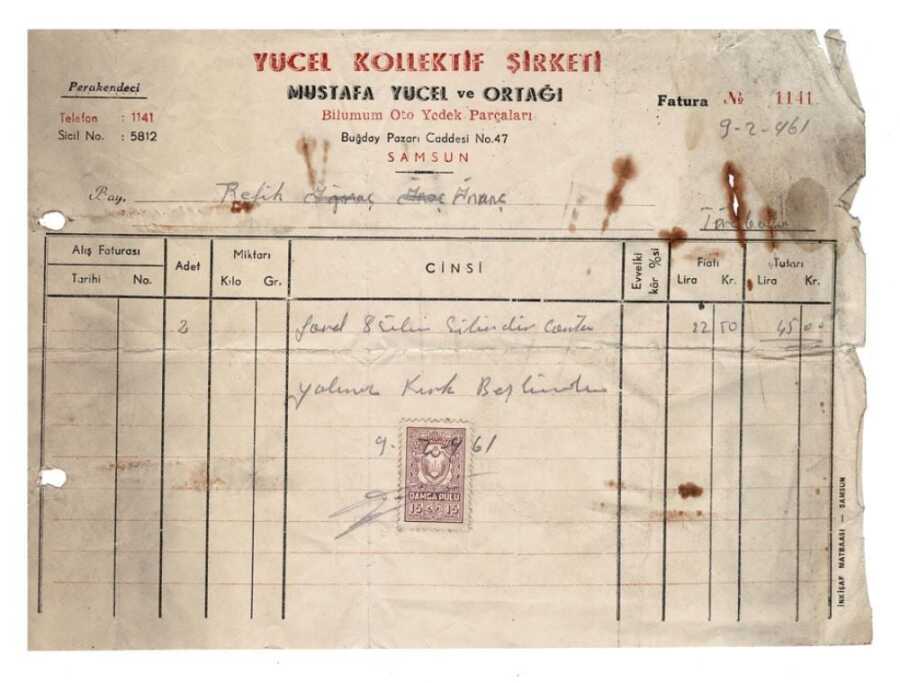 YUCEL KOLLEKTİF ŞİRKETİ
MUSTAFA YUCEL ve ORTAĞI
Bilumum Oto Yedek Parçaları
Buğday Pazarı Caddesi No.47
SAMSUN
Perakendeci
Telefon : 1141
Sicil No. : 5812
Fatura № 1141
9-2-961
Bay, Refik İnanç
Alış Faturası
Tarihi No.
Adet
Miktarı
Kilo Gr.
CİNSİ
Evvelki kâr %si
Fiatı
Lira Kr.
Tutarı
Lira Kr.
2 8 Silindir 22 50 45 00
Yalnız Kırk Beş Liradır
9-2-961
DAMGA PULU
15 15
İNKİŞAF MATBAASI — SAMSUN